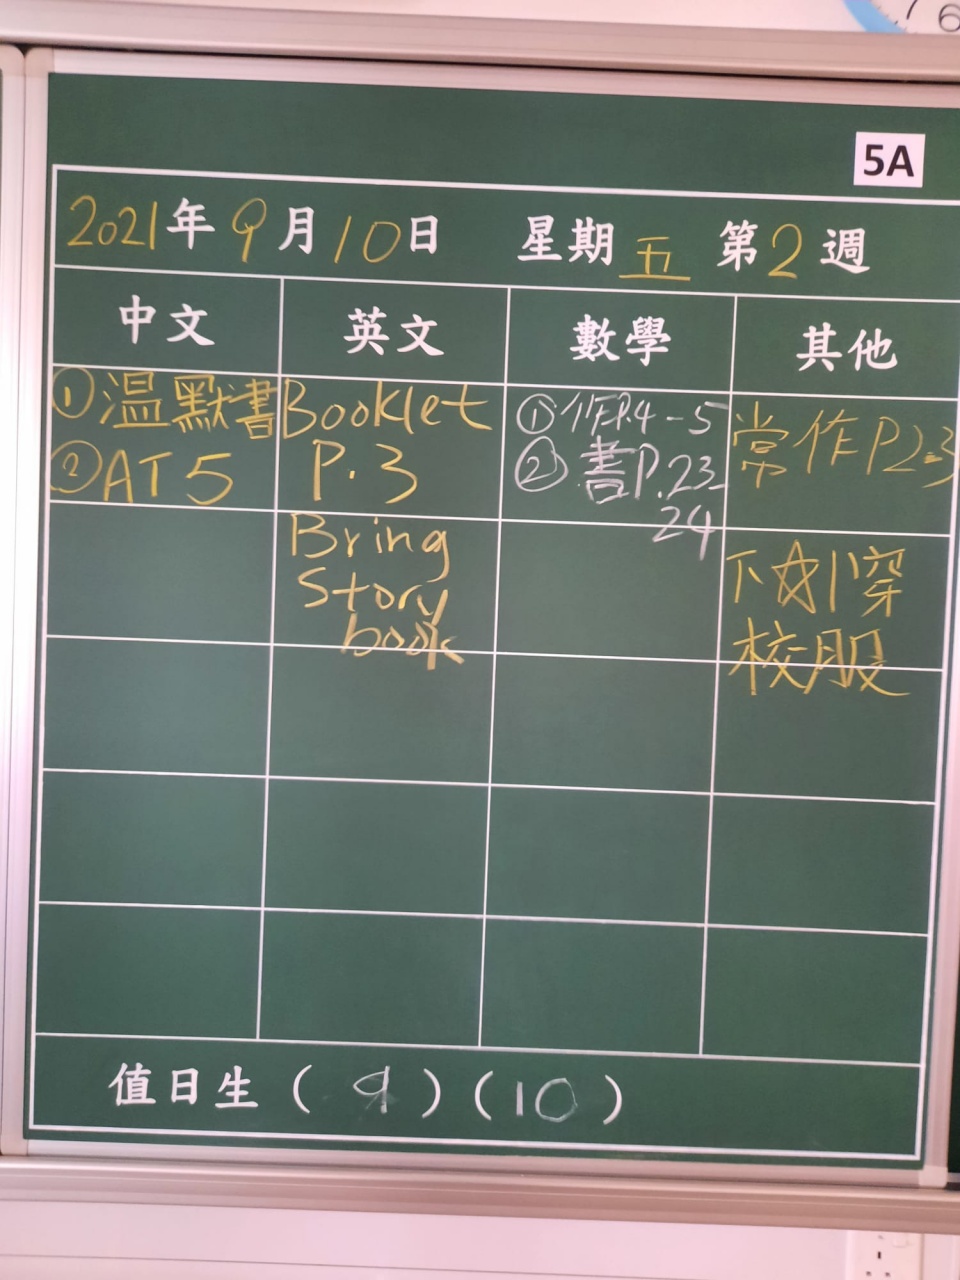 5A
2021年9月10日 星期五 第2週
中文 英文 數學 其他
①溫默書
②AT5
Booklet
P.3
Bring
Story
book
①作P.4-5
②書P.23-
24
常作P2-3
下☆1穿
校服
值日生(9)(10)
7 6